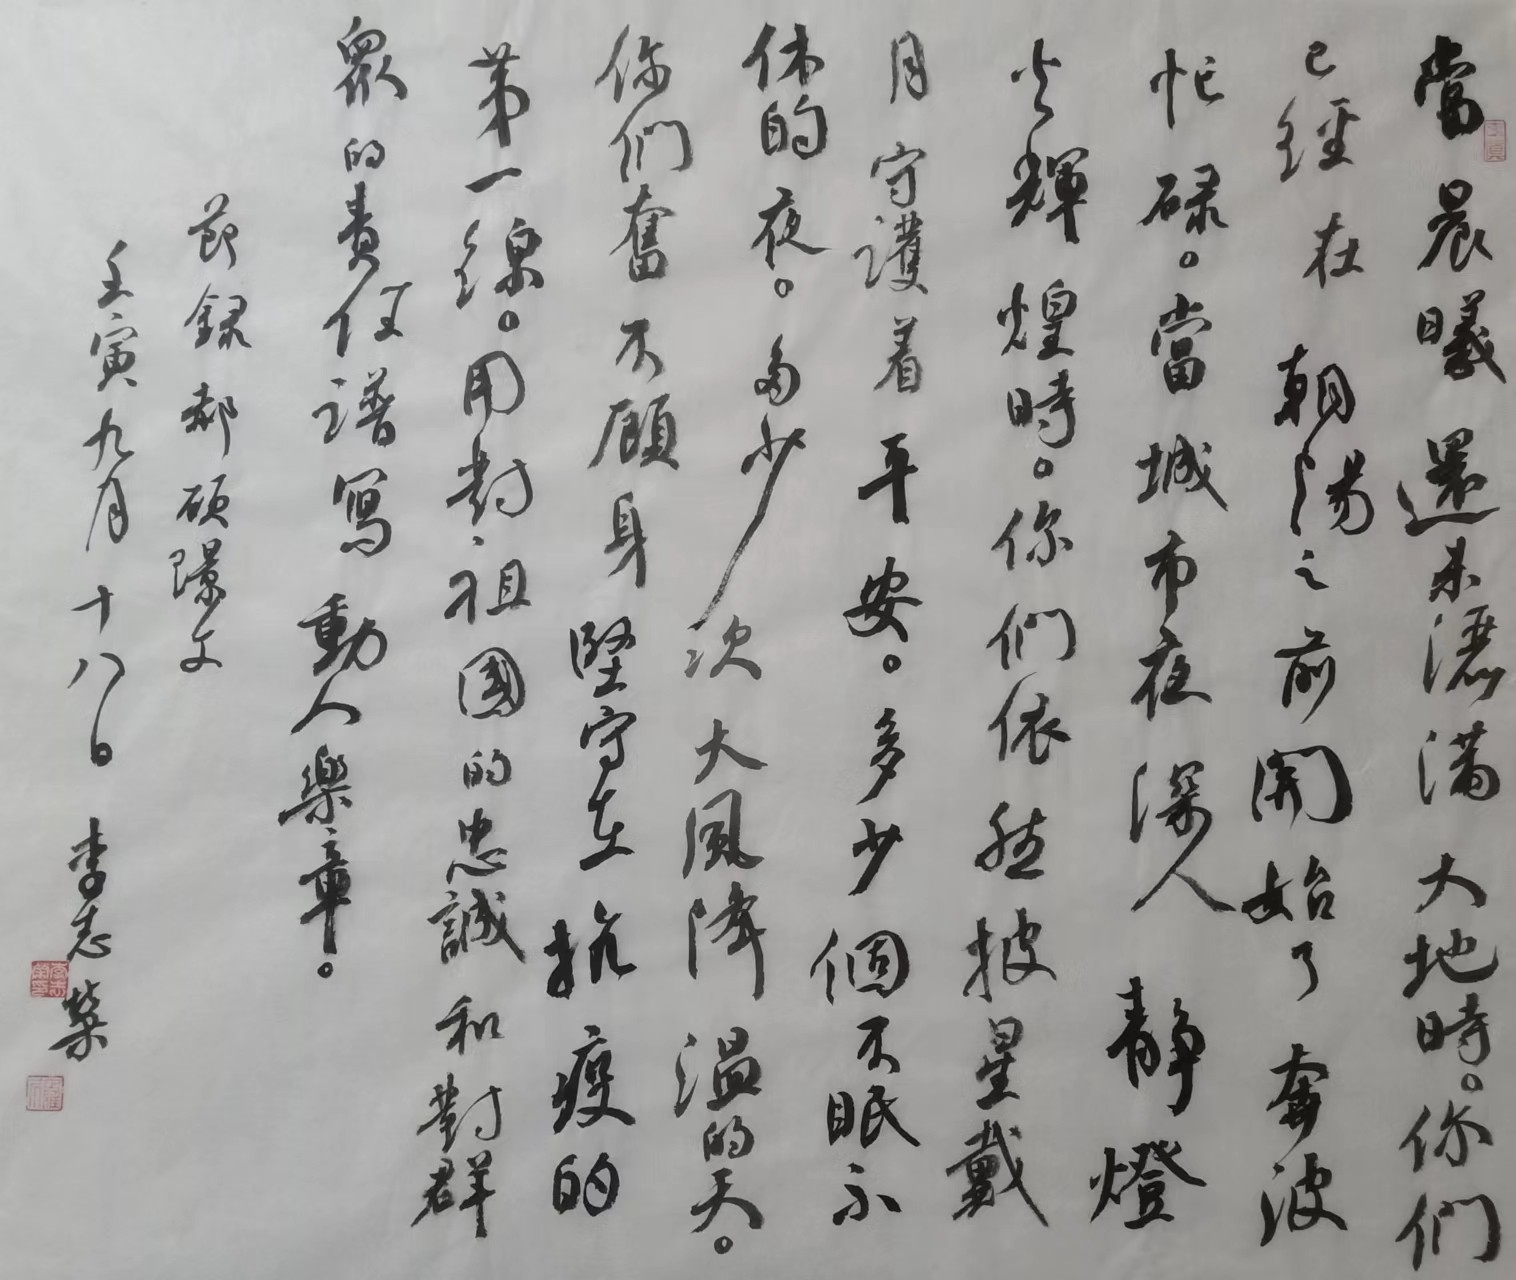 當晨曦還未灑满大地時。你们
已經在朝陽之前開始了奔波
忙碌。當城市夜深人静燈
火輝煌時。你們依然披星戴
月守護着平安。多少個不眠不
休的夜。多少次大風降温的天。
你們奮不顧身堅守在抗疫的
第一線。用對祖國的忠誠和對群
衆的責任譜寫動人樂章。
節録郝碩璟文
壬寅九月十八日李志榮